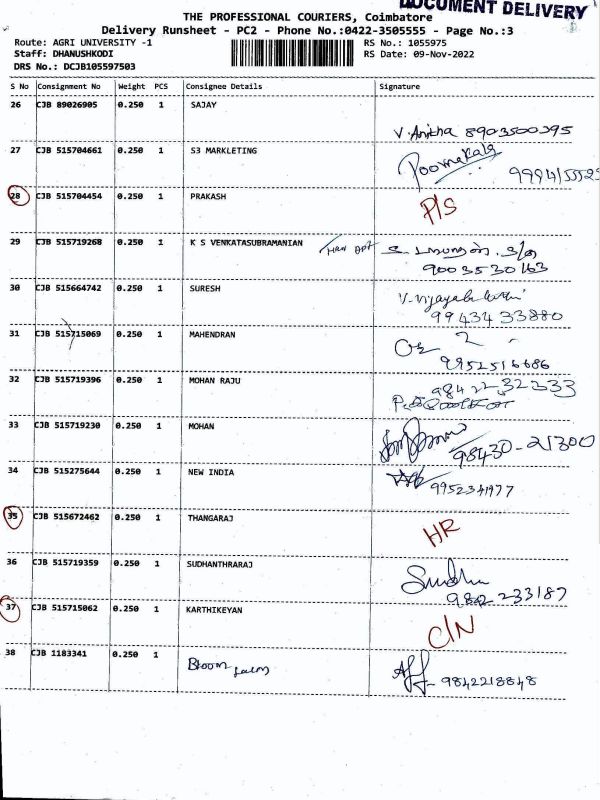 DOCUMENT DELIVERY
THE PROFESSIONAL COURIERS, Coimbatore
Delivery Runsheet - PC2 - Phone No.:0422-3505555 - Page No.:3
Route: AGRI UNIVERSITY -1 RS No.: 1055975
Staff: DHANUSHKODI RS Date: 09-Nov-2022
DRS No.: DCJB105597503
S No Consignment No Weight PCS Consignee Details Signature
26 CJB 89026905 0.250 1 SAJAY
V. Anitha 8903500295
27 CJB 515704661 0.250 1 S3 MARKLETING Poornakala
28 CJB 515704454 0.250 1 PRAKASH P/S
29 CJB 515719268 0.250 1 K S VENKATASUBRAMANIAN
9003530163
30 CJB 515664742 0.250 1 SURESH
9943433880
31 CJB 515715069 0.250 1 MAHENDRAN
9952516686
32 CJB 515719396 0.250 1 MOHAN RAJU 9842232333
33 CJB 515719230 0.250 1 MOHAN
98430-21300
34 CJB 515275644 0.250 1 NEW INDIA
9952341977
35 CJB 515672462 0.250 1 THANGARAJ HR
36 CJB 515719359 0.250 1 SUDHANTHRARAJ Sudha
37 CJB 515715062 0.250 1 KARTHIKEYAN C/N
38 CJB 1183341 0.250 1 Bloom
9842218848